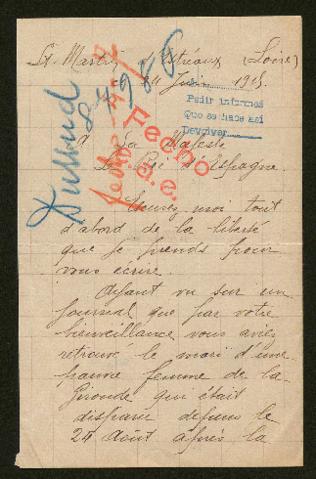 St Martin d'Estréaux (Loire)
24 Juin 1915.
Dubud
84986
Pedir informes
Que se hace así
Devolver
Fecho
A Sa Majesté
Le Roi d'Espagne.
Excusez moi tout
d'abord de la liberté
que je prends pour
vous écrire.
Ayant vu sur un
journal que par votre
bienveillance vous aviez
retrouvé le mari d'une
pauvre femme de la
Gironde qui était
disparu depuis le
24 Août après la